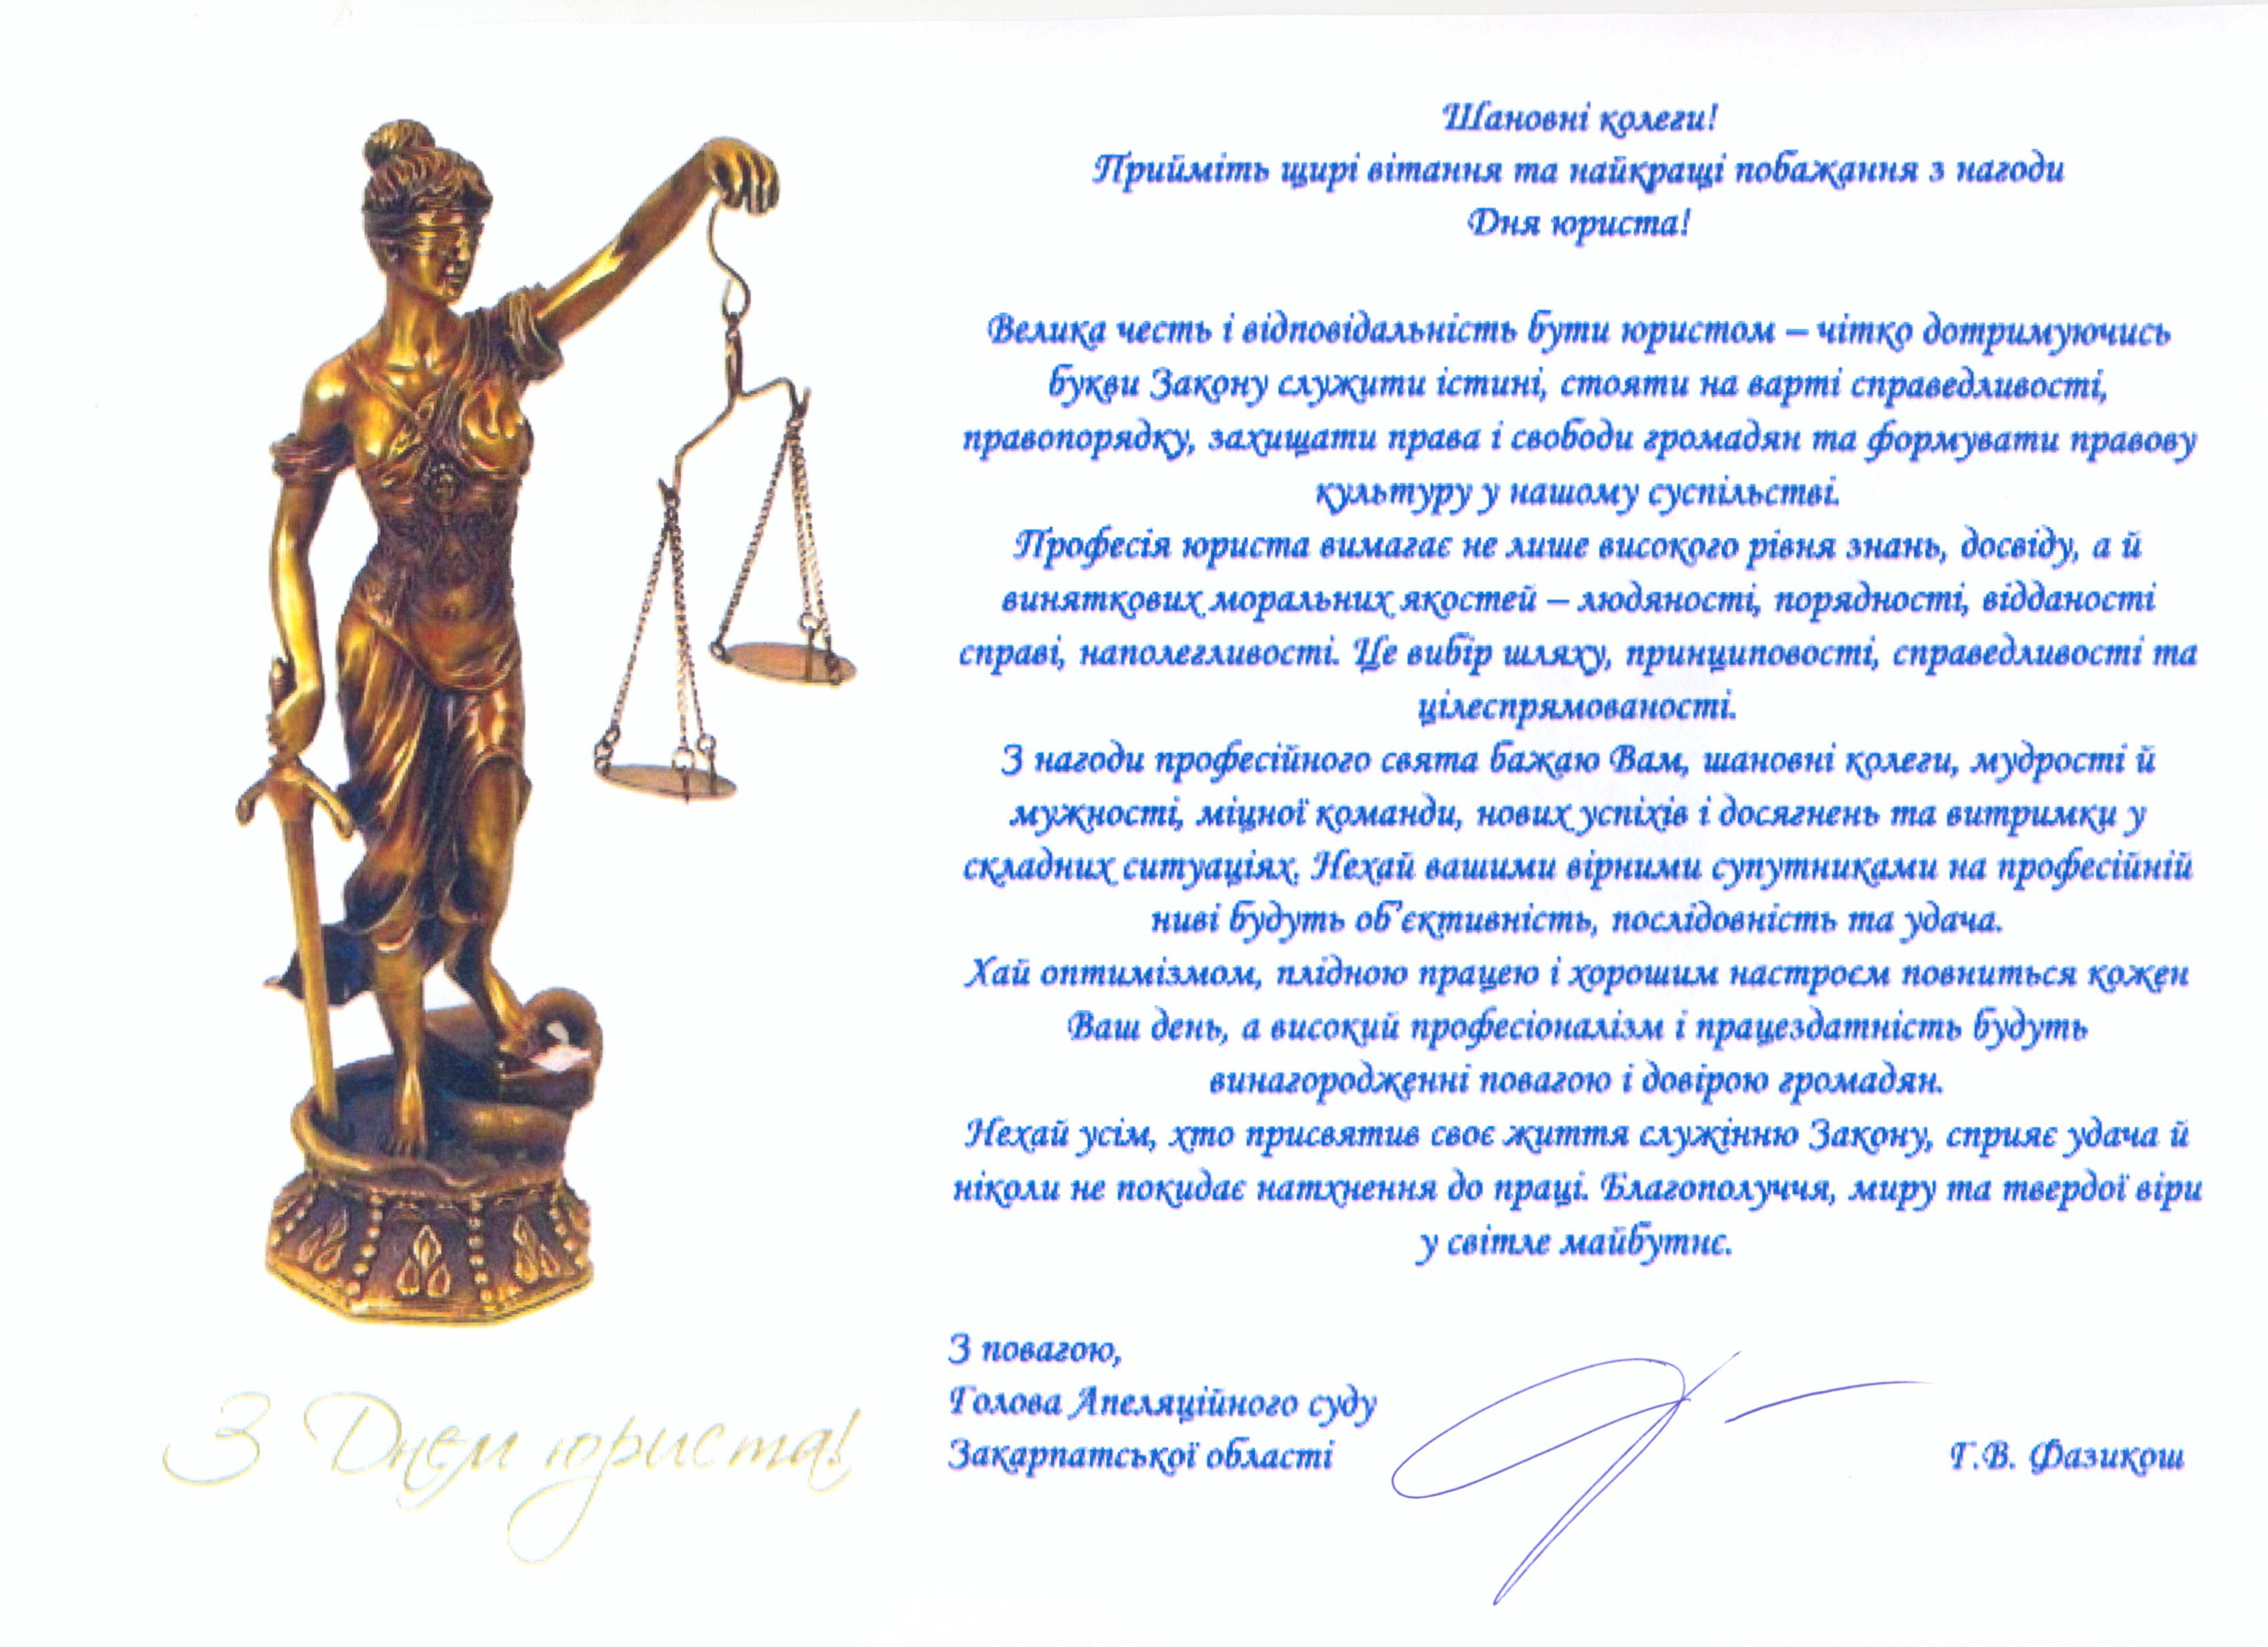 Шановні колеги!
Прийміть щирі вітання та найкращі побажання з нагоди
Дня юриста!
Велика честь і відповідальність бути юристом – чітко дотримуючись
букви Закону служити істині, стояти на варті справедливості,
правопорядку, захищати права і свободи громадян та формувати правову
культуру у нашому суспільстві.
Професія юриста вимагає не лише високого рівня знань, досвіду, а й
виняткових моральних якостей – людяності, порядності, відданості
справі, наполегливості. Це вибір шляху, принциповості, справедливості та
цілеспрямованості.
З нагоди професійного свята бажаю Вам, шановні колеги, мудрості й
мужності, міцної команди, нових успіхів і досягнень та витримки у
складних ситуаціях. Нехай вашими вірними супутниками на професійній
ниві будуть об’єктивність, послідовність та удача.
Хай оптимізмом, плідною працею і хорошим настроєм повниться кожен
Ваш день, а високий професіоналізм і працездатність будуть
винагородженні повагою і довірою громадян.
Нехай усім, хто присвятив своє життя служінню Закону, сприяє удача й
ніколи не покидає натхнення до праці. Благополуччя, миру та твердої віри
у світле майбутнє.
З повагою,
Голова Апеляційного суду
Закарпатської області
Г.В. Фазикош
З Днем юриста!